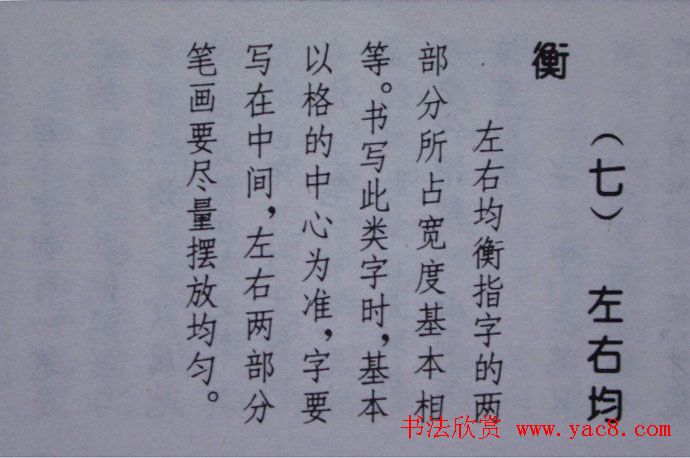 （七） 左右均
衡
左右均衡指字的两
部分所占宽度基本相
等。书写此类字时，基本
以格的中心为准，字要
写在中间，左右两部分
笔画要尽量摆放均匀。
书法欣赏 www.yac8.com